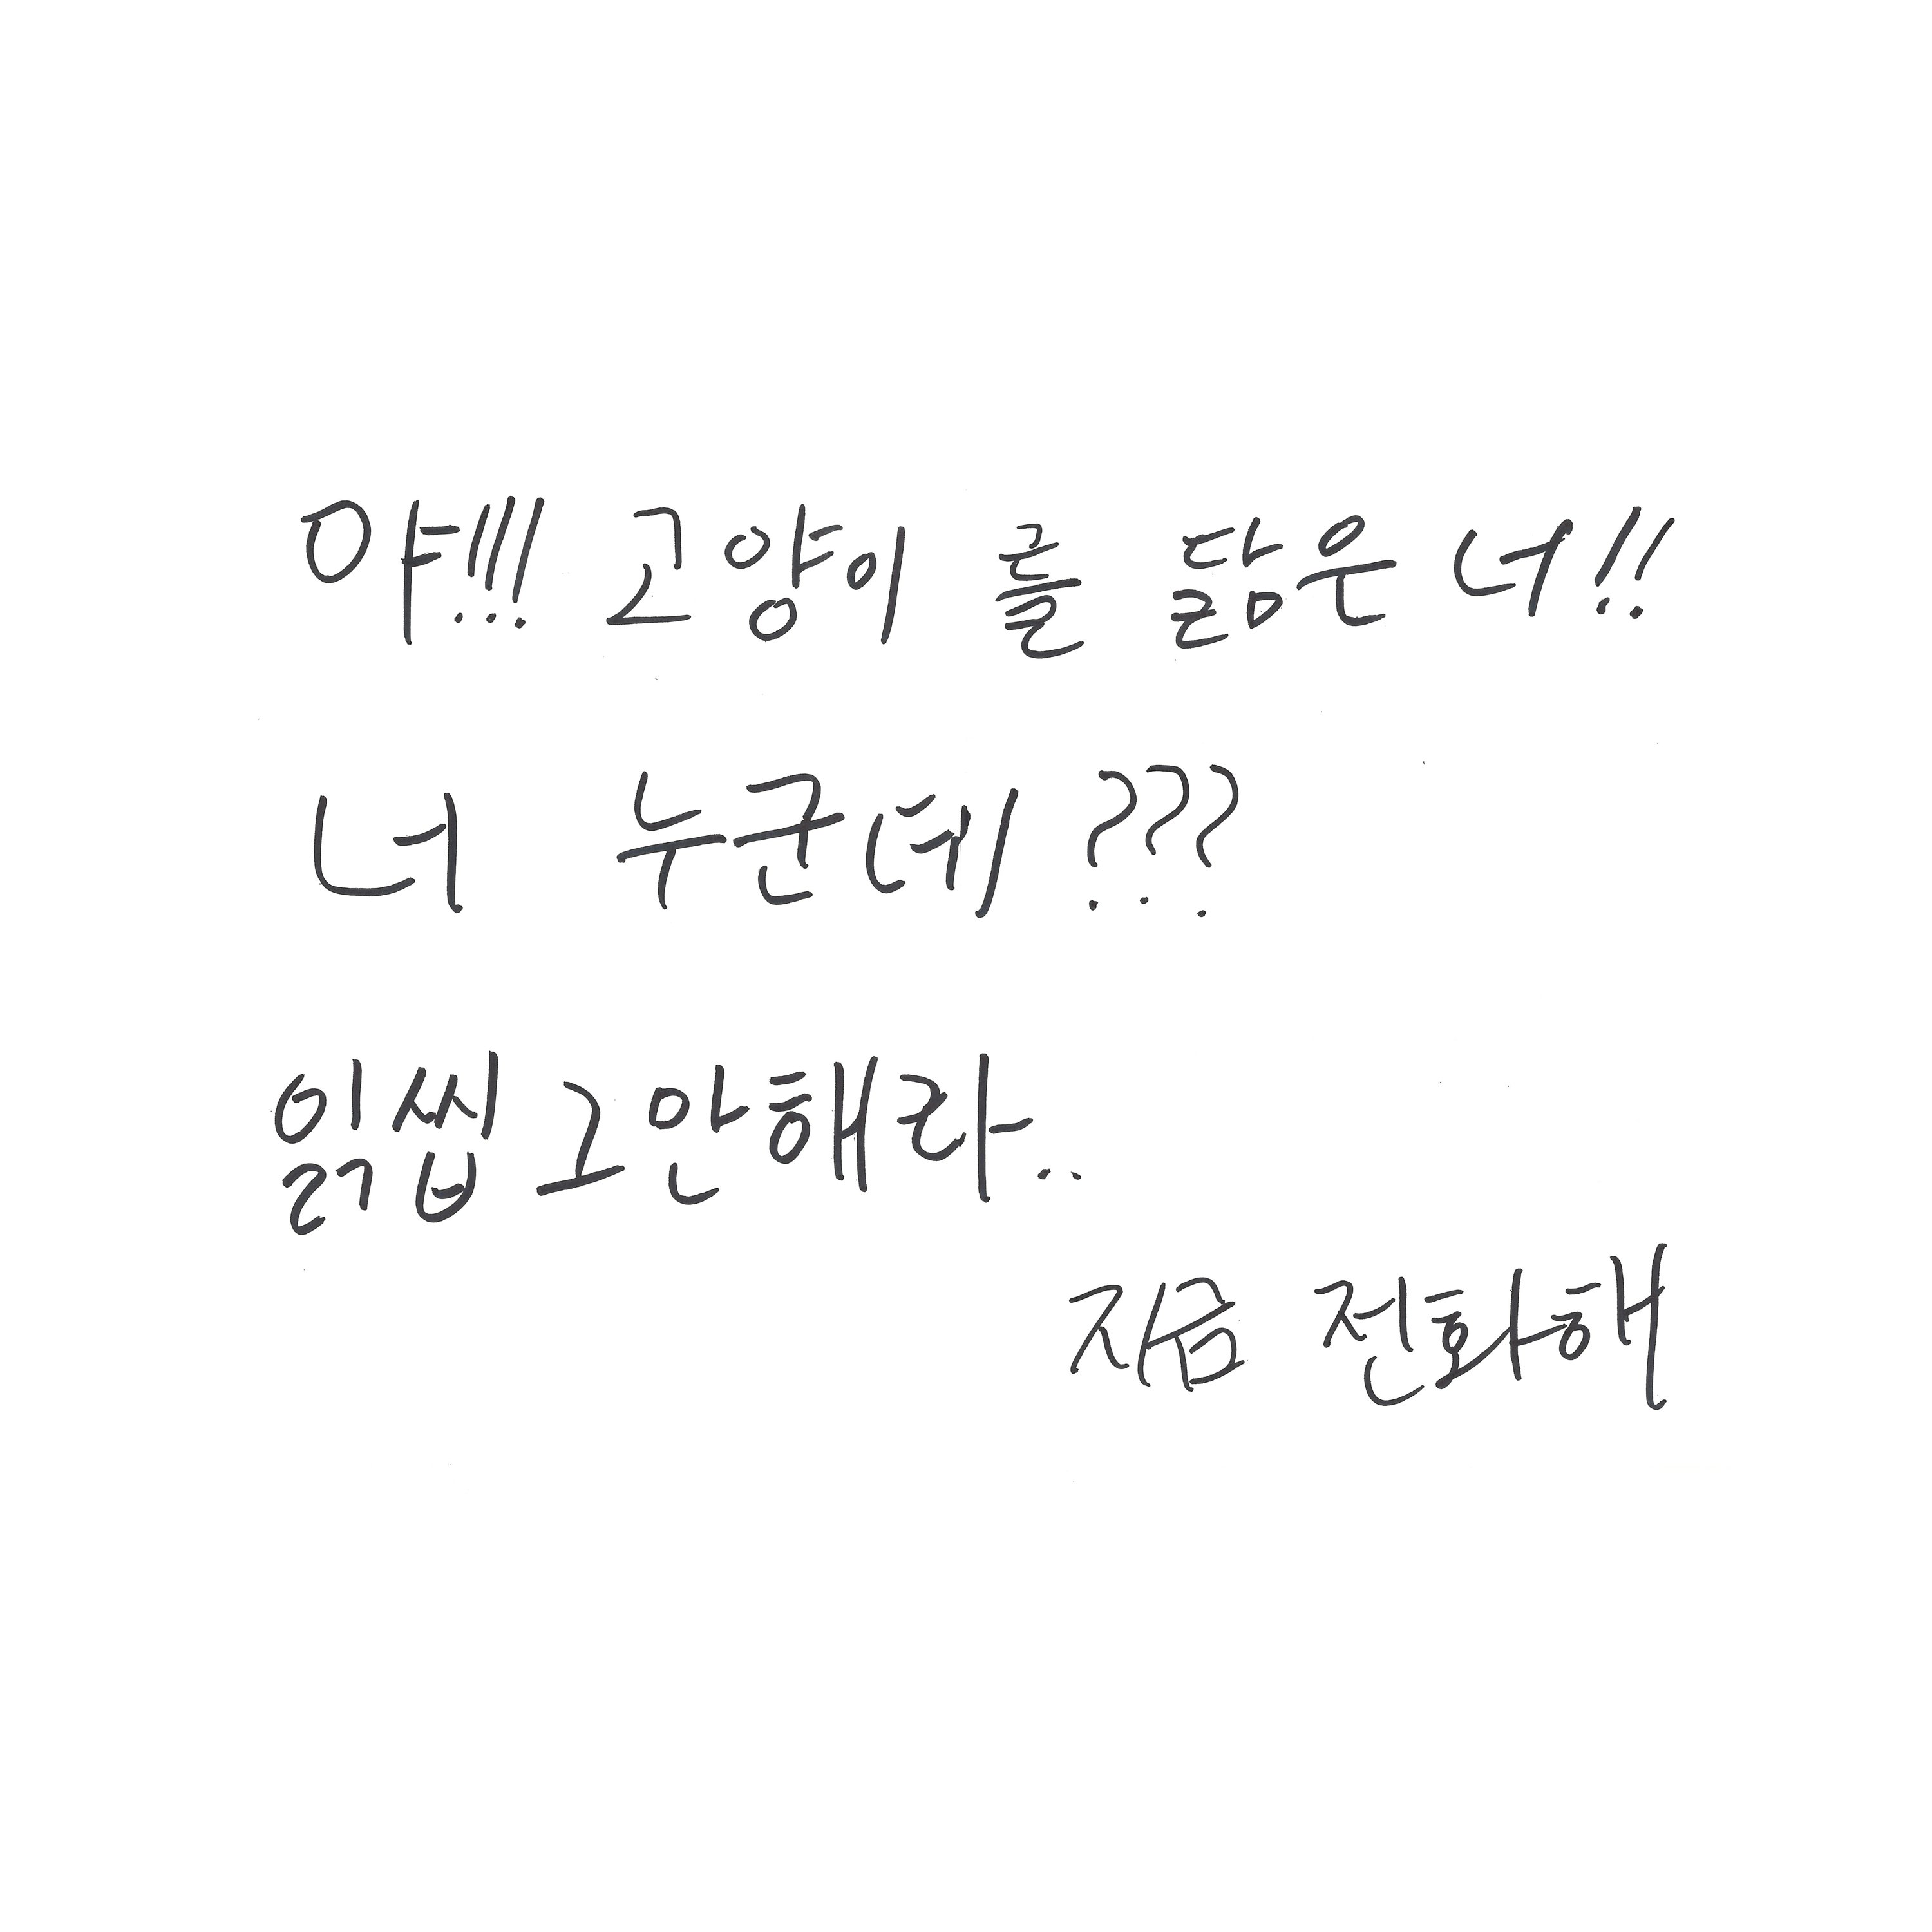 야!!! 고양이 를 닮은 너!!
너 누군데???
읽씹 그만해라..
지금 전화해